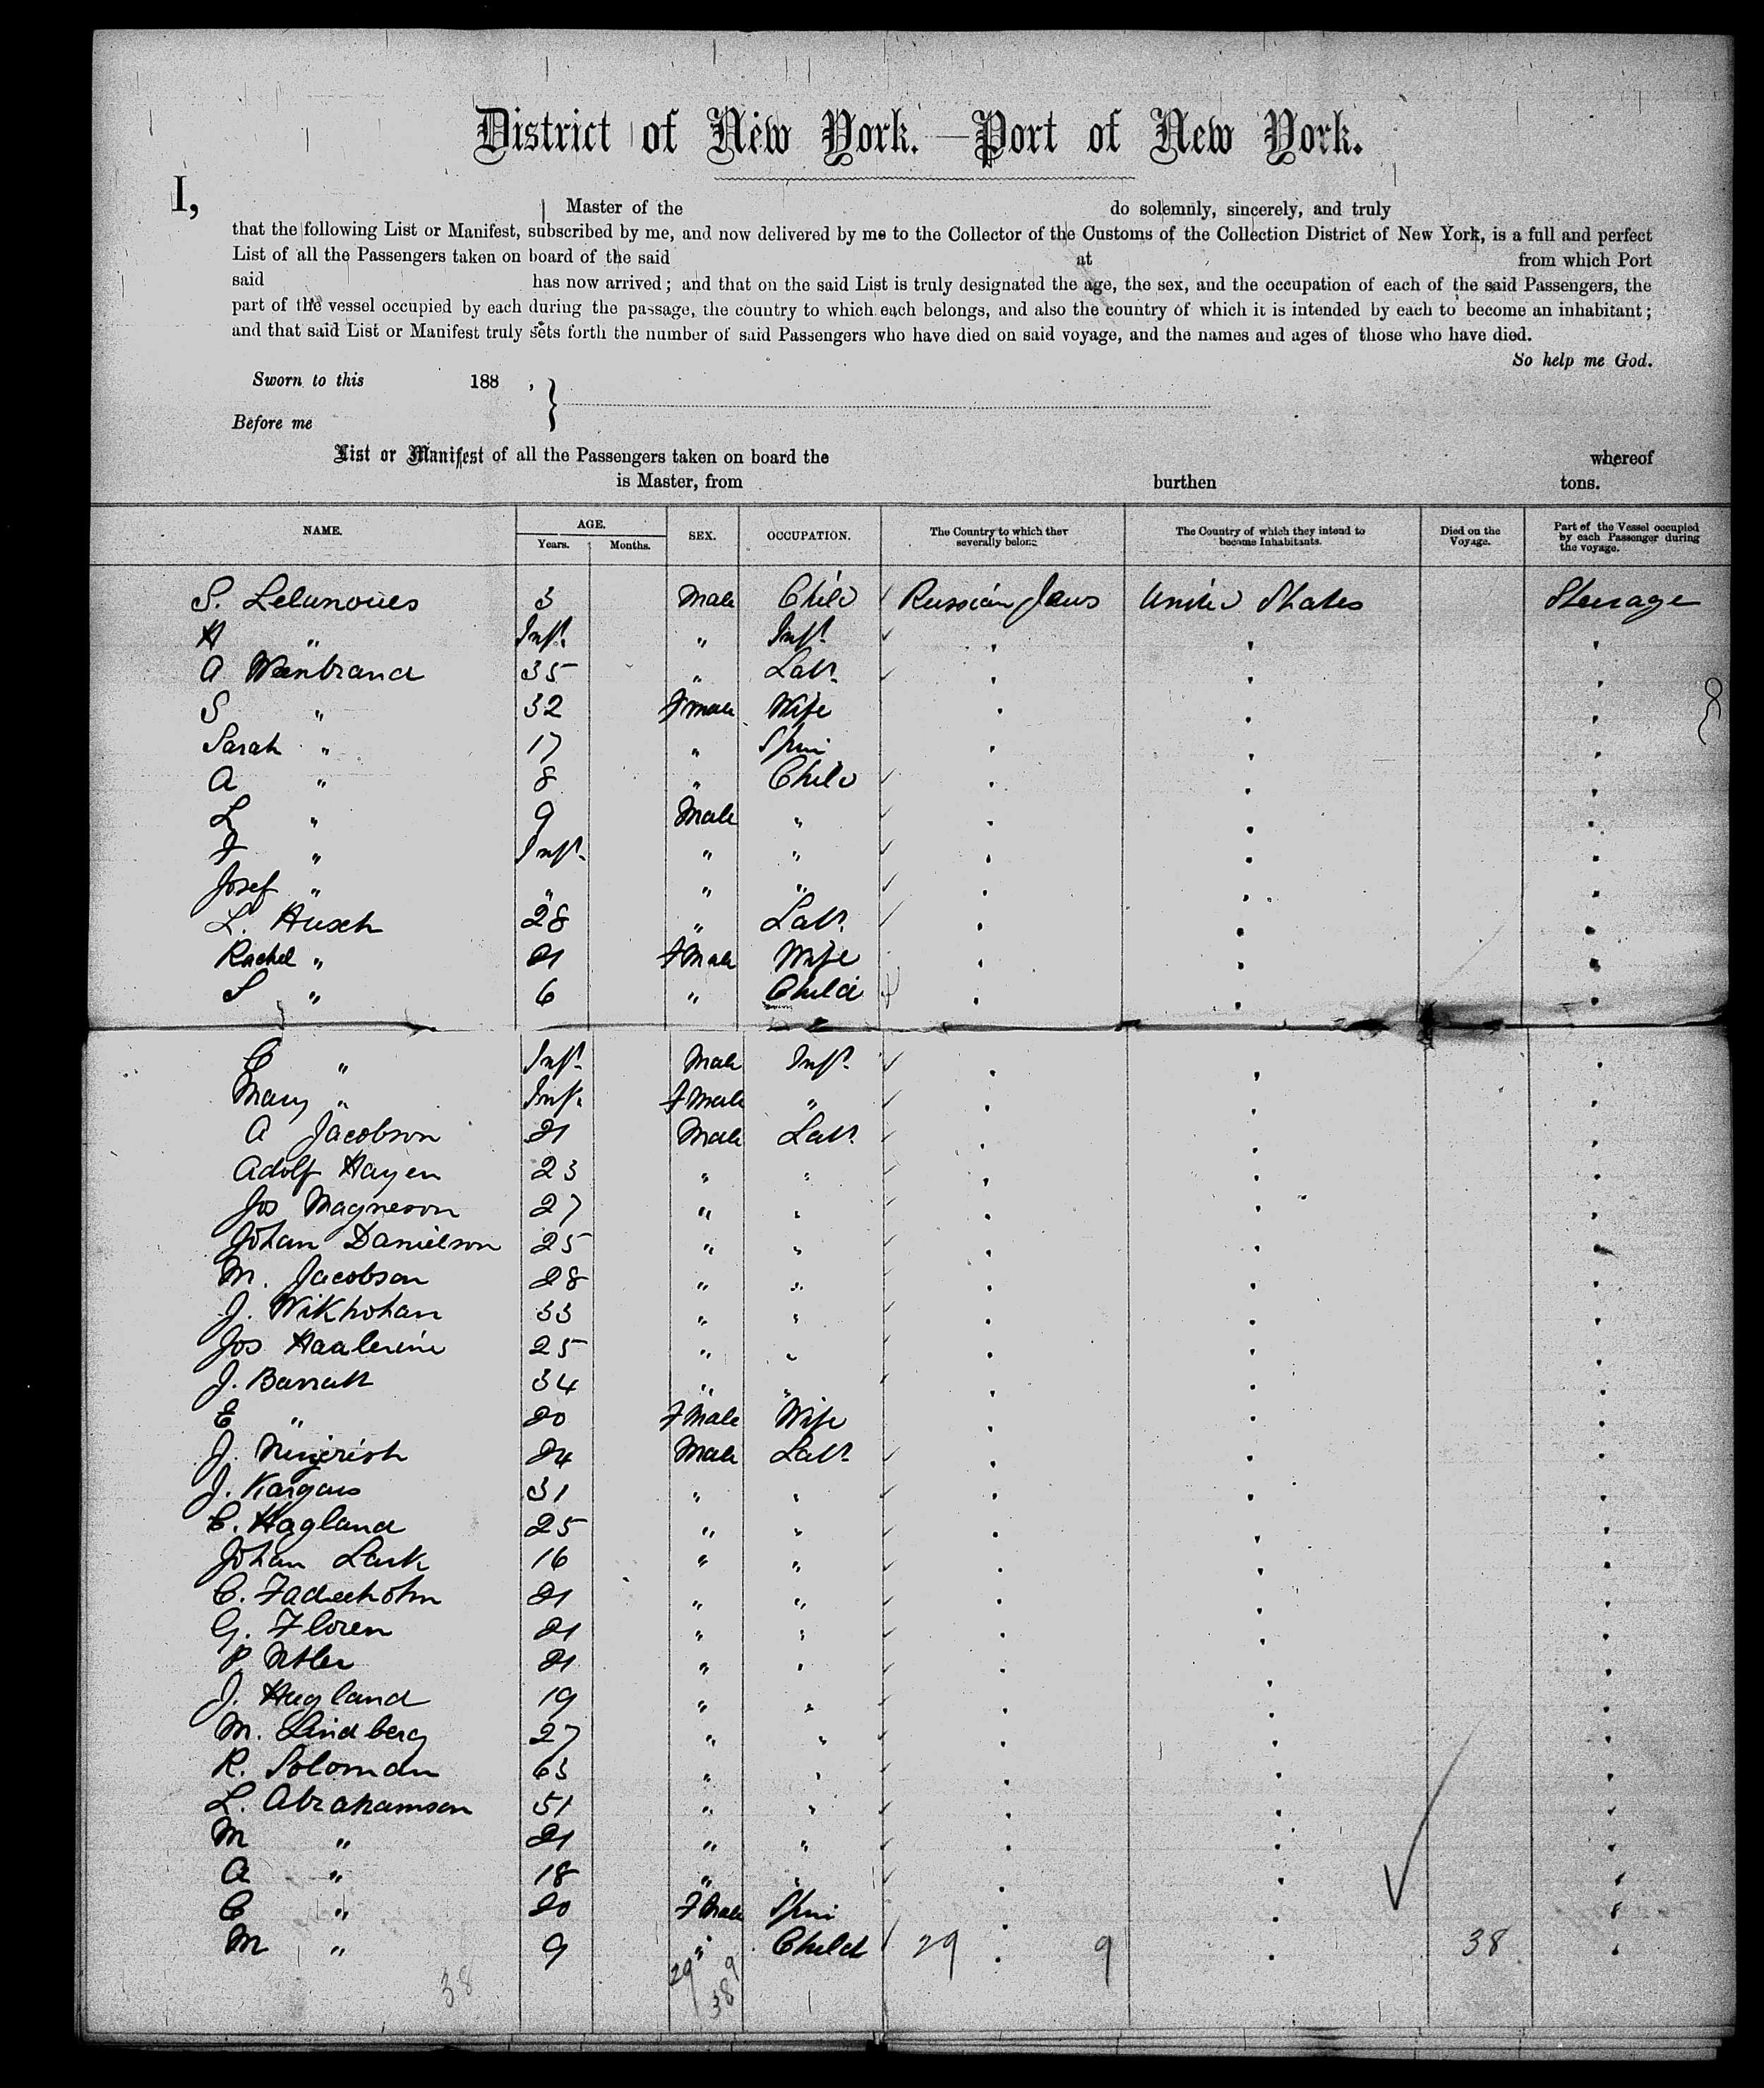 District of New York. — Port of New York.
I, Master of the do solemnly, sincerely, and truly
that the following List or Manifest, subscribed by me, and now delivered by me to the Collector of the Customs of the Collection District of New York, is a full and perfect
List of all the Passengers taken on board of the said at from which Port
said has now arrived; and that on the said List is truly designated the age, the sex, and the occupation of each of the said Passengers, the
part of the vessel occupied by each during the passage, the country to which each belongs, and also the country of which it is intended by each to become an inhabitant;
and that said List or Manifest truly sets forth the number of said Passengers who have died on said voyage, and the names and ages of those who have died.
So help me God.
Sworn to this 188 ,
Before me
List or Manifest of all the Passengers taken on board the whereof
is Master, from burthen tons.
NAME. AGE. Years. Months. SEX. OCCUPATION. The Country to which they severally belong. The Country of which they intend to become Inhabitants. Died on the Voyage. Part of the Vessel occupied by each Passenger during the voyage.
S. 3 Male Child Russian Jews United States Steerage
H " Inft. " Inft.
A 35 " Labr.
S " 32 Fmale Wife
Sarah " 17 " Spin
A " 8 " Child
L " 9 Male "
" Inft. " "
Josef " " " "
L. 28 " Labr.
Rachel " 21 Fmale Wife
S " 6 " Child
C " Inft. Male Inft.
Mary " Inft. Fmale "
A Jacobson 21 Male Labr.
Adolf Hayen 23 " "
Jos Magneson 27 " "
Johan Danielson 25 " "
M. Jacobson 28 " "
J. Wikhohan 33 " "
Jos 25 " "
J. 34 " "
E " 20 Fmale Wife
J. 24 Male Labr.
J. 31 " "
C. Hagland 25 " "
Johan 16 " "
C. 21 " "
G. Floren 21 " "
P. 21 " "
J. Hugland 19 " "
M. Lindberg 27 " "
R. Soloman 63 " "
L. Abrahamson 51 " "
M " 21 " "
A " 18 " "
C " 20 Fmale Spin
M " 9 " Child 29 9 38
38 29 9
38